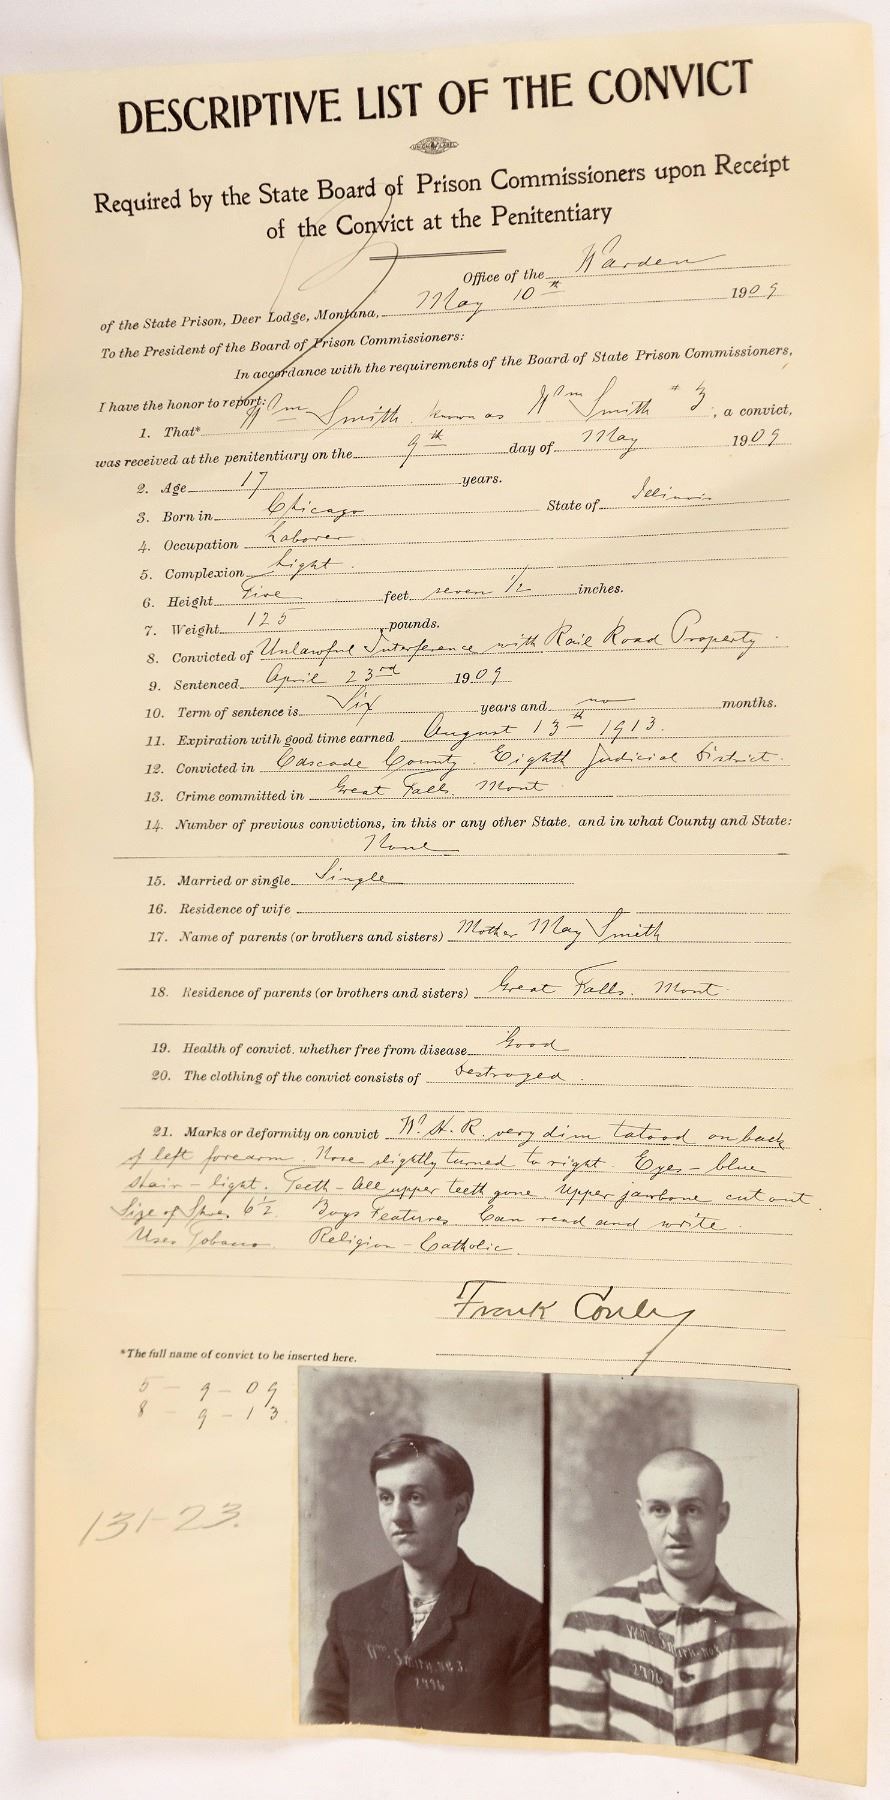 DESCRIPTIVE LIST OF THE CONVICT
Required by the State Board of Prison Commissioners upon Receipt
of the Convict at the Penitentiary
Office of the Warden
of the State Prison, Deer Lodge, Montana, May 10th 1909
To the President of the Board of Prison Commissioners:
In accordance with the requirements of the Board of State Prison Commissioners,
I have the honor to report:
1. That* Wm Smith known as Wm Smith # 3, a convict,
was received at the penitentiary on the 9th day of May 1909
2. Age 17 years.
3. Born in Chicago State of Illinois
4. Occupation Laborer
5. Complexion Light.
6. Height Five feet seven 1/2 inches.
7. Weight 125 pounds.
8. Convicted of Unlawful Interference with Rail Road Property.
9. Sentenced April 23rd 1909
10. Term of sentence is Six years and no months.
11. Expiration with good time earned August 13th 1913.
12. Convicted in Cascade County. Eighth Judicial District.
13. Crime committed in Great Falls. Mont
14. Number of previous convictions, in this or any other State, and in what County and State:
None
15. Married or single Single
16. Residence of wife
17. Name of parents (or brothers and sisters) Mother May Smith
18. Residence of parents (or brothers and sisters) Great Falls. Mont
19. Health of convict, whether free from disease Good
20. The clothing of the convict consists of Destroyed.
21. Marks or deformity on convict W. H. R. very dim tatood on back
of left forearm. Nose slightly turned to right. Eyes - blue
Hair - light. Teeth - All upper teeth gone. Upper jawbone cut out
Size of Shoe 6 1/2. Boys Features. Can read and write.
Uses Tobacco. Religion - Catholic.
Frank Conley
*The full name of convict to be inserted here.
5 - 9 - 09
8 - 9 - 13.
131-23.
Wm. Smith. No 3.
2796
Wm. Smith. No 3
2796